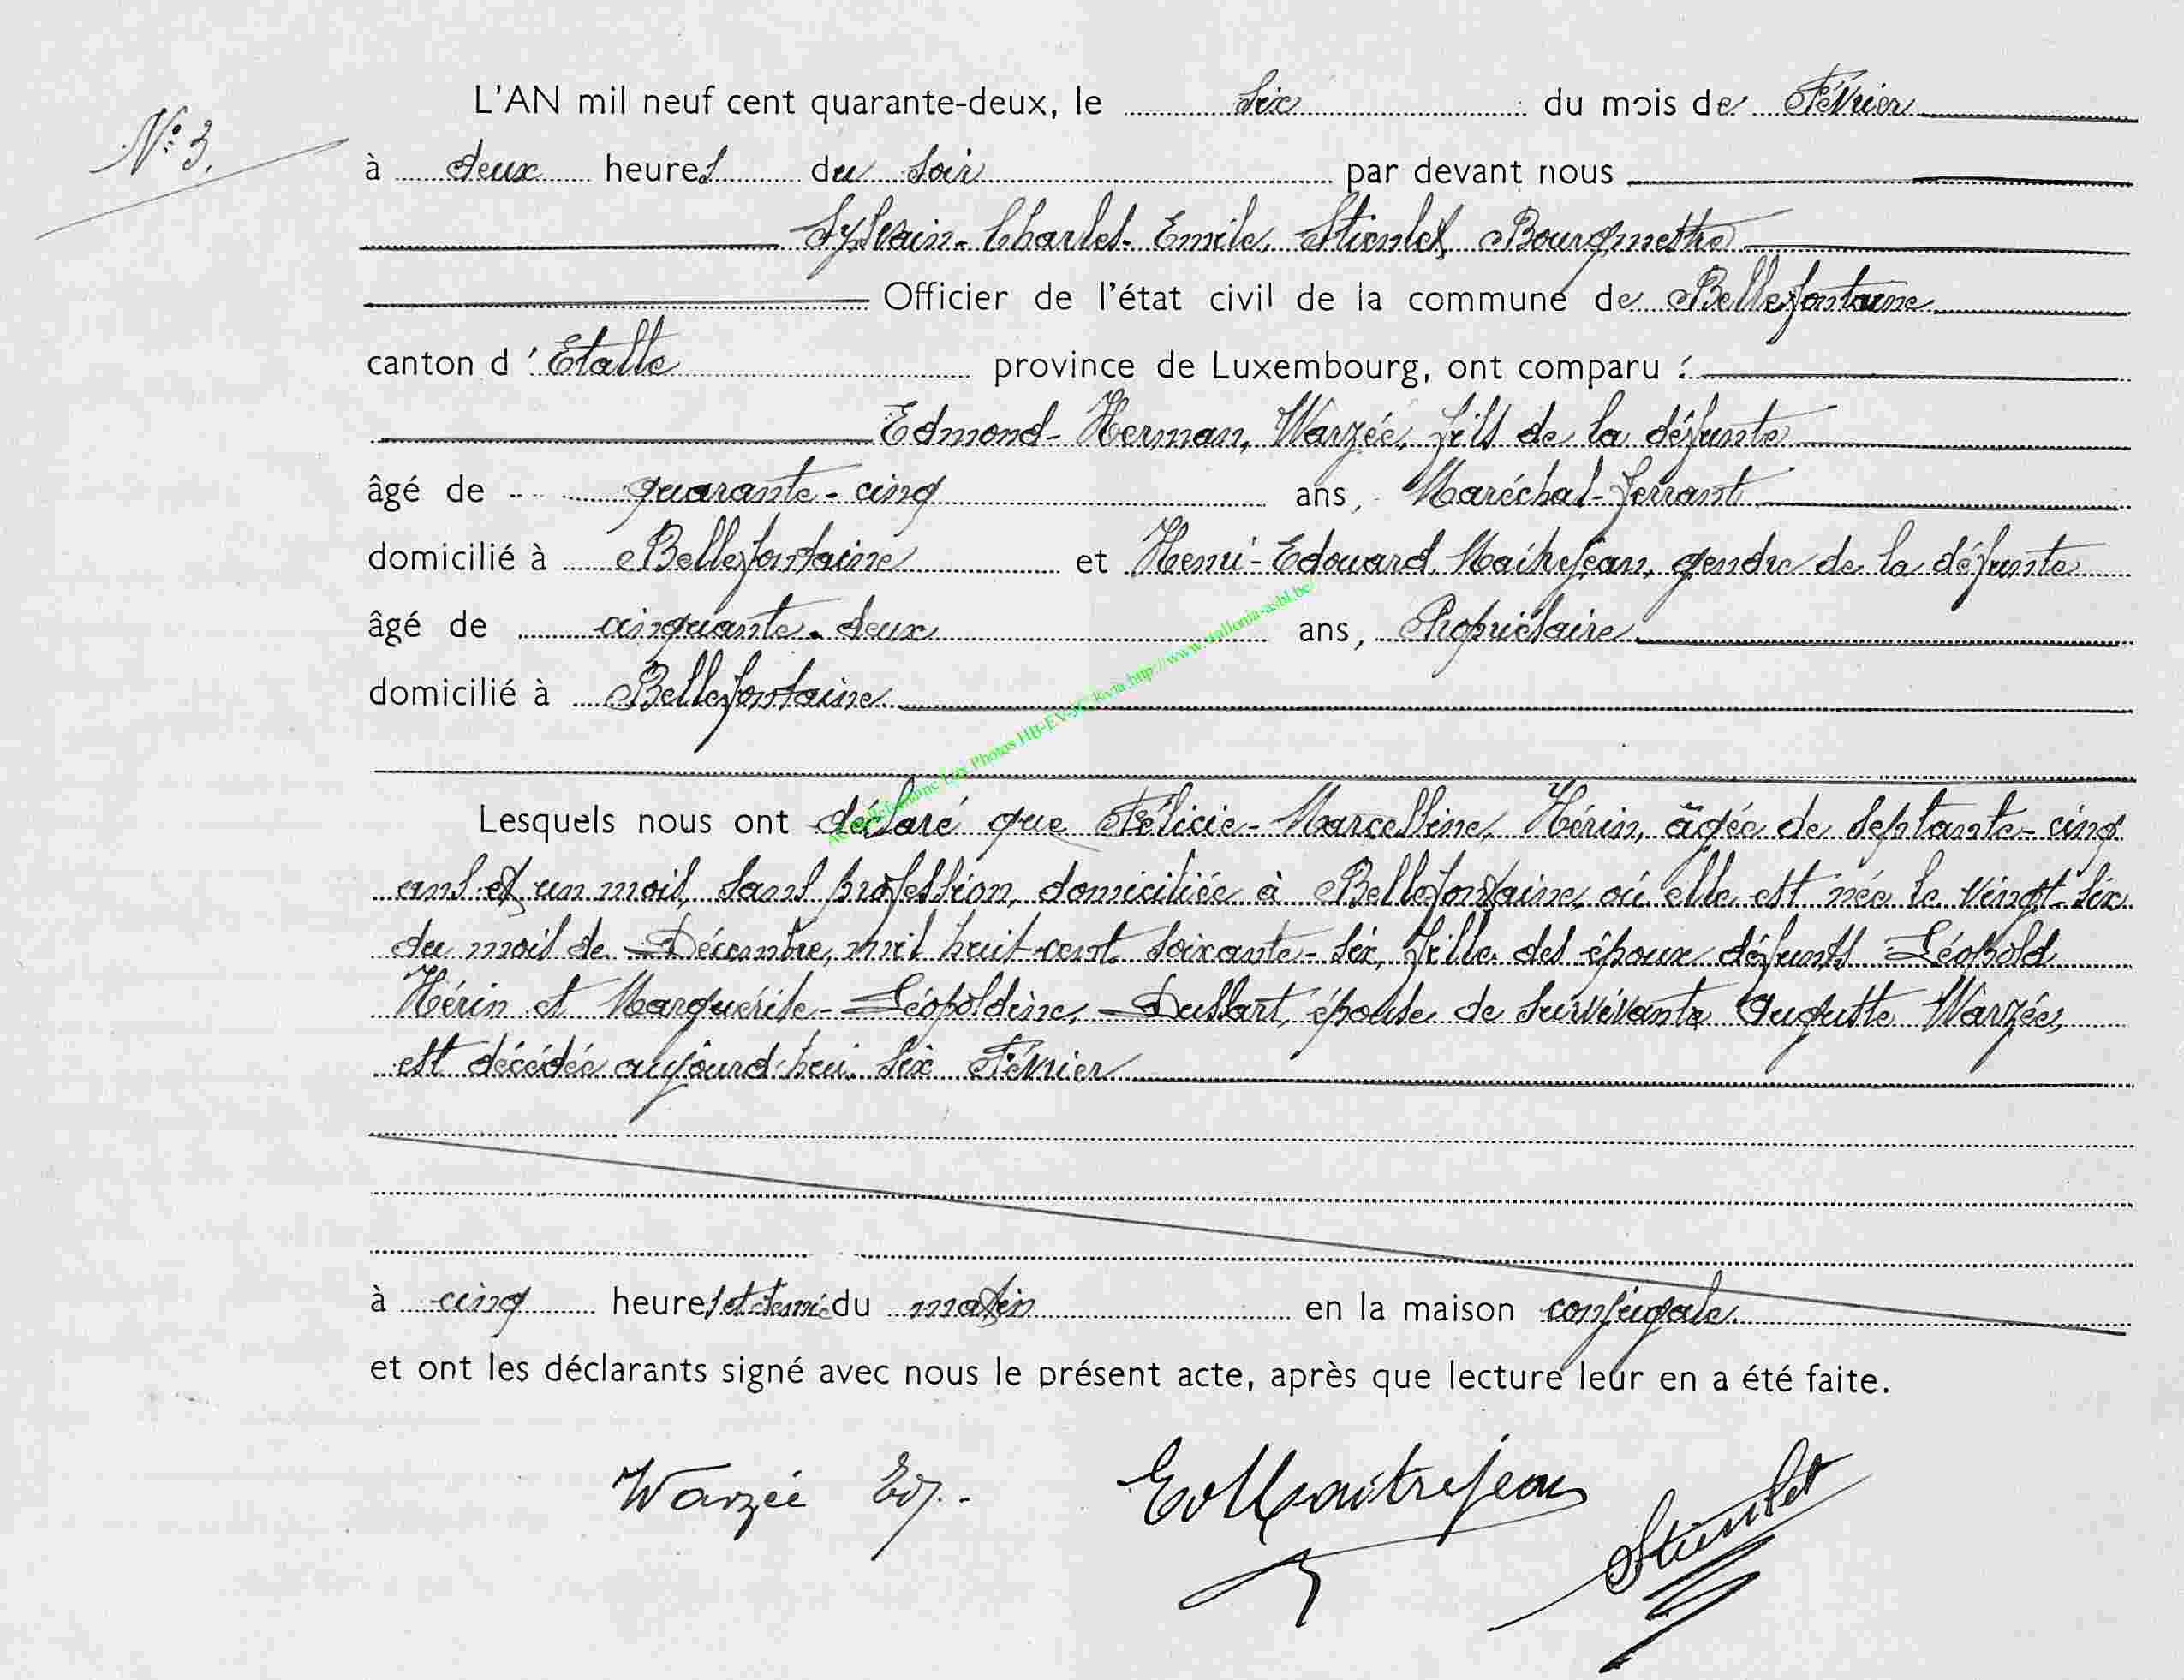 N° 3.
L'AN mil neuf cent quarante-deux, le six du mois de Février
à deux heures du soir par devant nous
Sylvain-Charles-Emile, Stienlet, Bourgmestre
Officier de l'état civil de la commune de Bellefontaine
canton d'Etalle province de Luxembourg, ont comparu :
Edmond-Herman, Warzée, fils de la défunte
âgé de quarante-cinq ans, Maréchal-ferrant
domicilié à Bellefontaine et Henri-Edouard, Maitrejean, gendre de la défunte
âgé de cinquante-deux ans, Propriétaire
domicilié à Bellefontaine
Lesquels nous ont déclaré que Félicie-Marcelline, Hérin, âgée de septante-cinq
ans et un mois, sans profession, domiciliée à Bellefontaine, où elle est née le vingt-six
du mois de Décembre, mil huit-cent soixante-six, fille des époux défunts Léopold
Hérin et Marguérite-Léopoldine, Dussart, épouse de survivante Auguste Warzée,
est décédée aujourd'hui six Février
à cinq heures et demie du matin en la maison conjugale.
et ont les déclarants signé avec nous le présent acte, après que lecture leur en a été faite.
Warzée Ed.
Ed Maitrejean
Stienlet
Photos HB-EV-JC via http://www.wallonia-asbl.be/